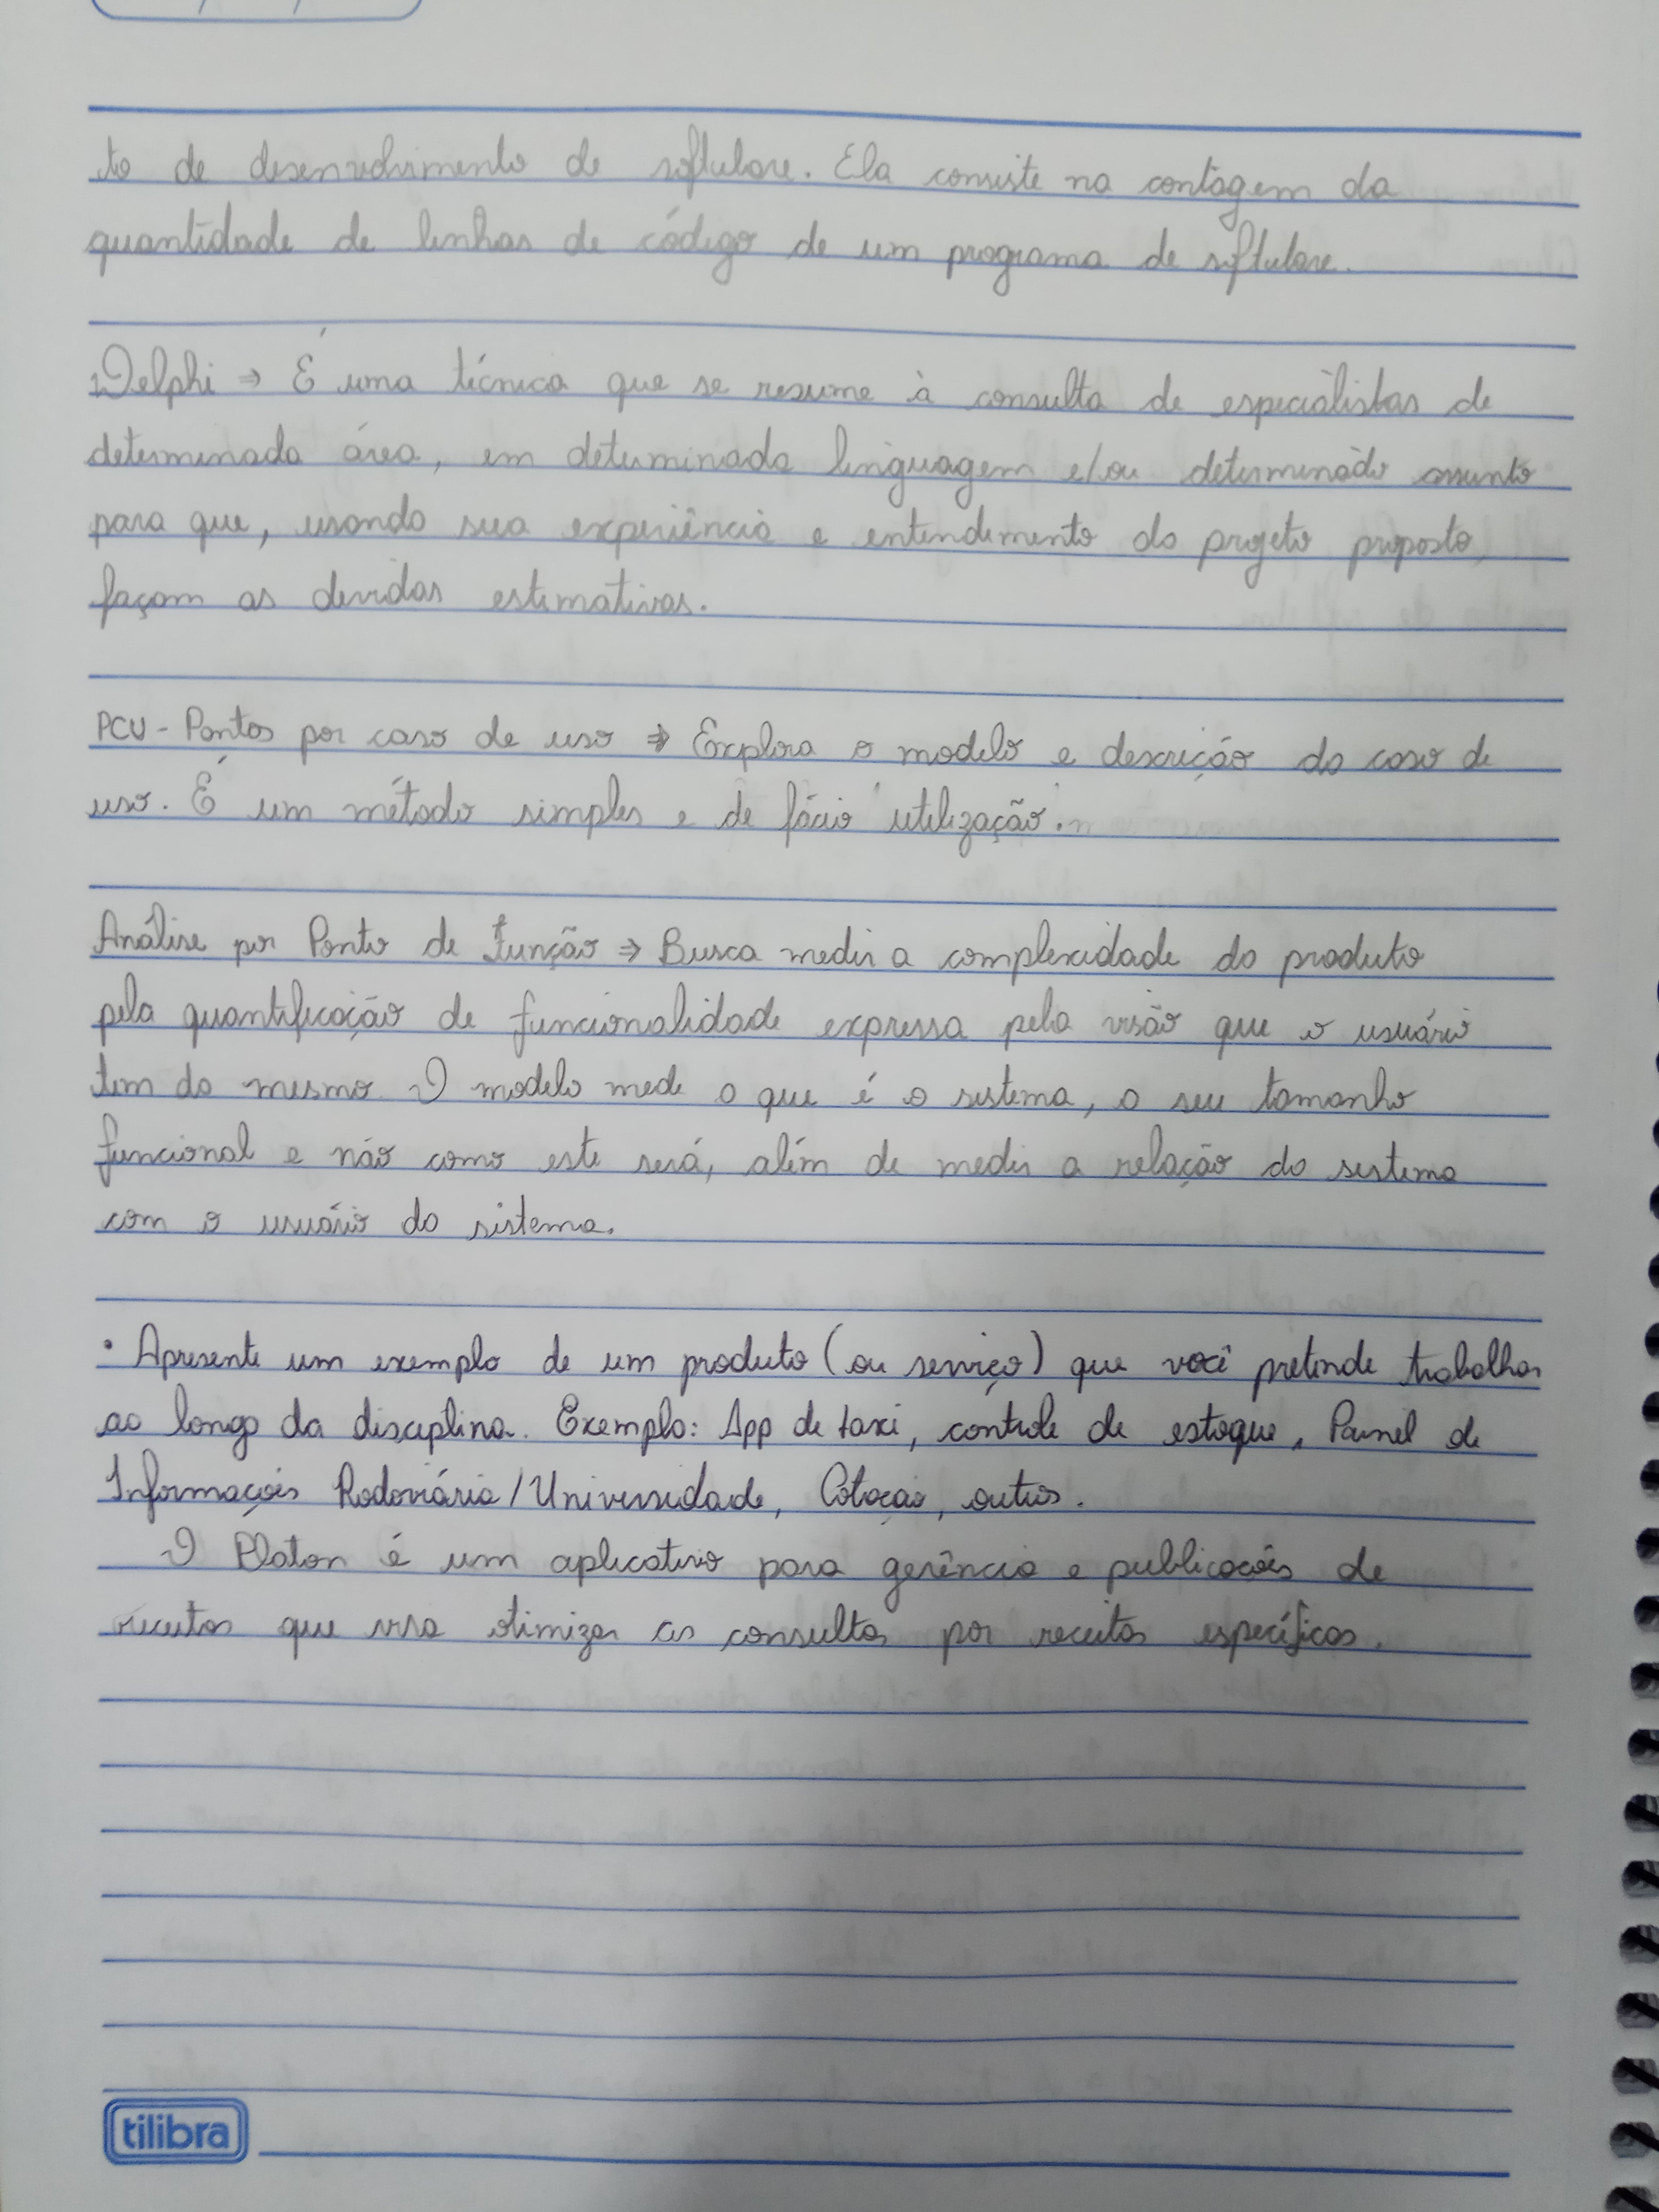 to de desenvolvimento de softulare. Ela consiste na contagem da
quantidade de linhas de código de um programa de softulare.
Delphi ⇒ É uma técnica que se resume à consulta de especialistas de
determinada área, em determinada linguagem e/ou determinado assunto
para que, usando sua experiência e entendimento do projeto proposto,
façam as devidas estimativas.
PCU - Pontos por caso de uso ⇒ Explora o modelo e descrição do caso de
uso. É um método simples e de fácio utilização.
Análise por Ponto de Função ⇒ Busca medir a complexidade do produto
pela quantificação de funcionalidade expressa pela visão que o usuário
tem do mesmo. O modelo mede o que é o sistema, o seu tamanho
funcional e não como este será, além de medir a relação do sistema
com o usuário do sistema.
• Apresente um exemplo de um produto (ou serviço) que você pretende trabalhar
ao longo da disciplina. Exemplo: App de taxi, controle de estoque, Painel de
Informações Rodoviária/Universidade, Cotação, outros.
O Platon é um aplicativo para gerência e publicações de
receitas que visa otimizar as consultas por receitas específicas.
tilibra